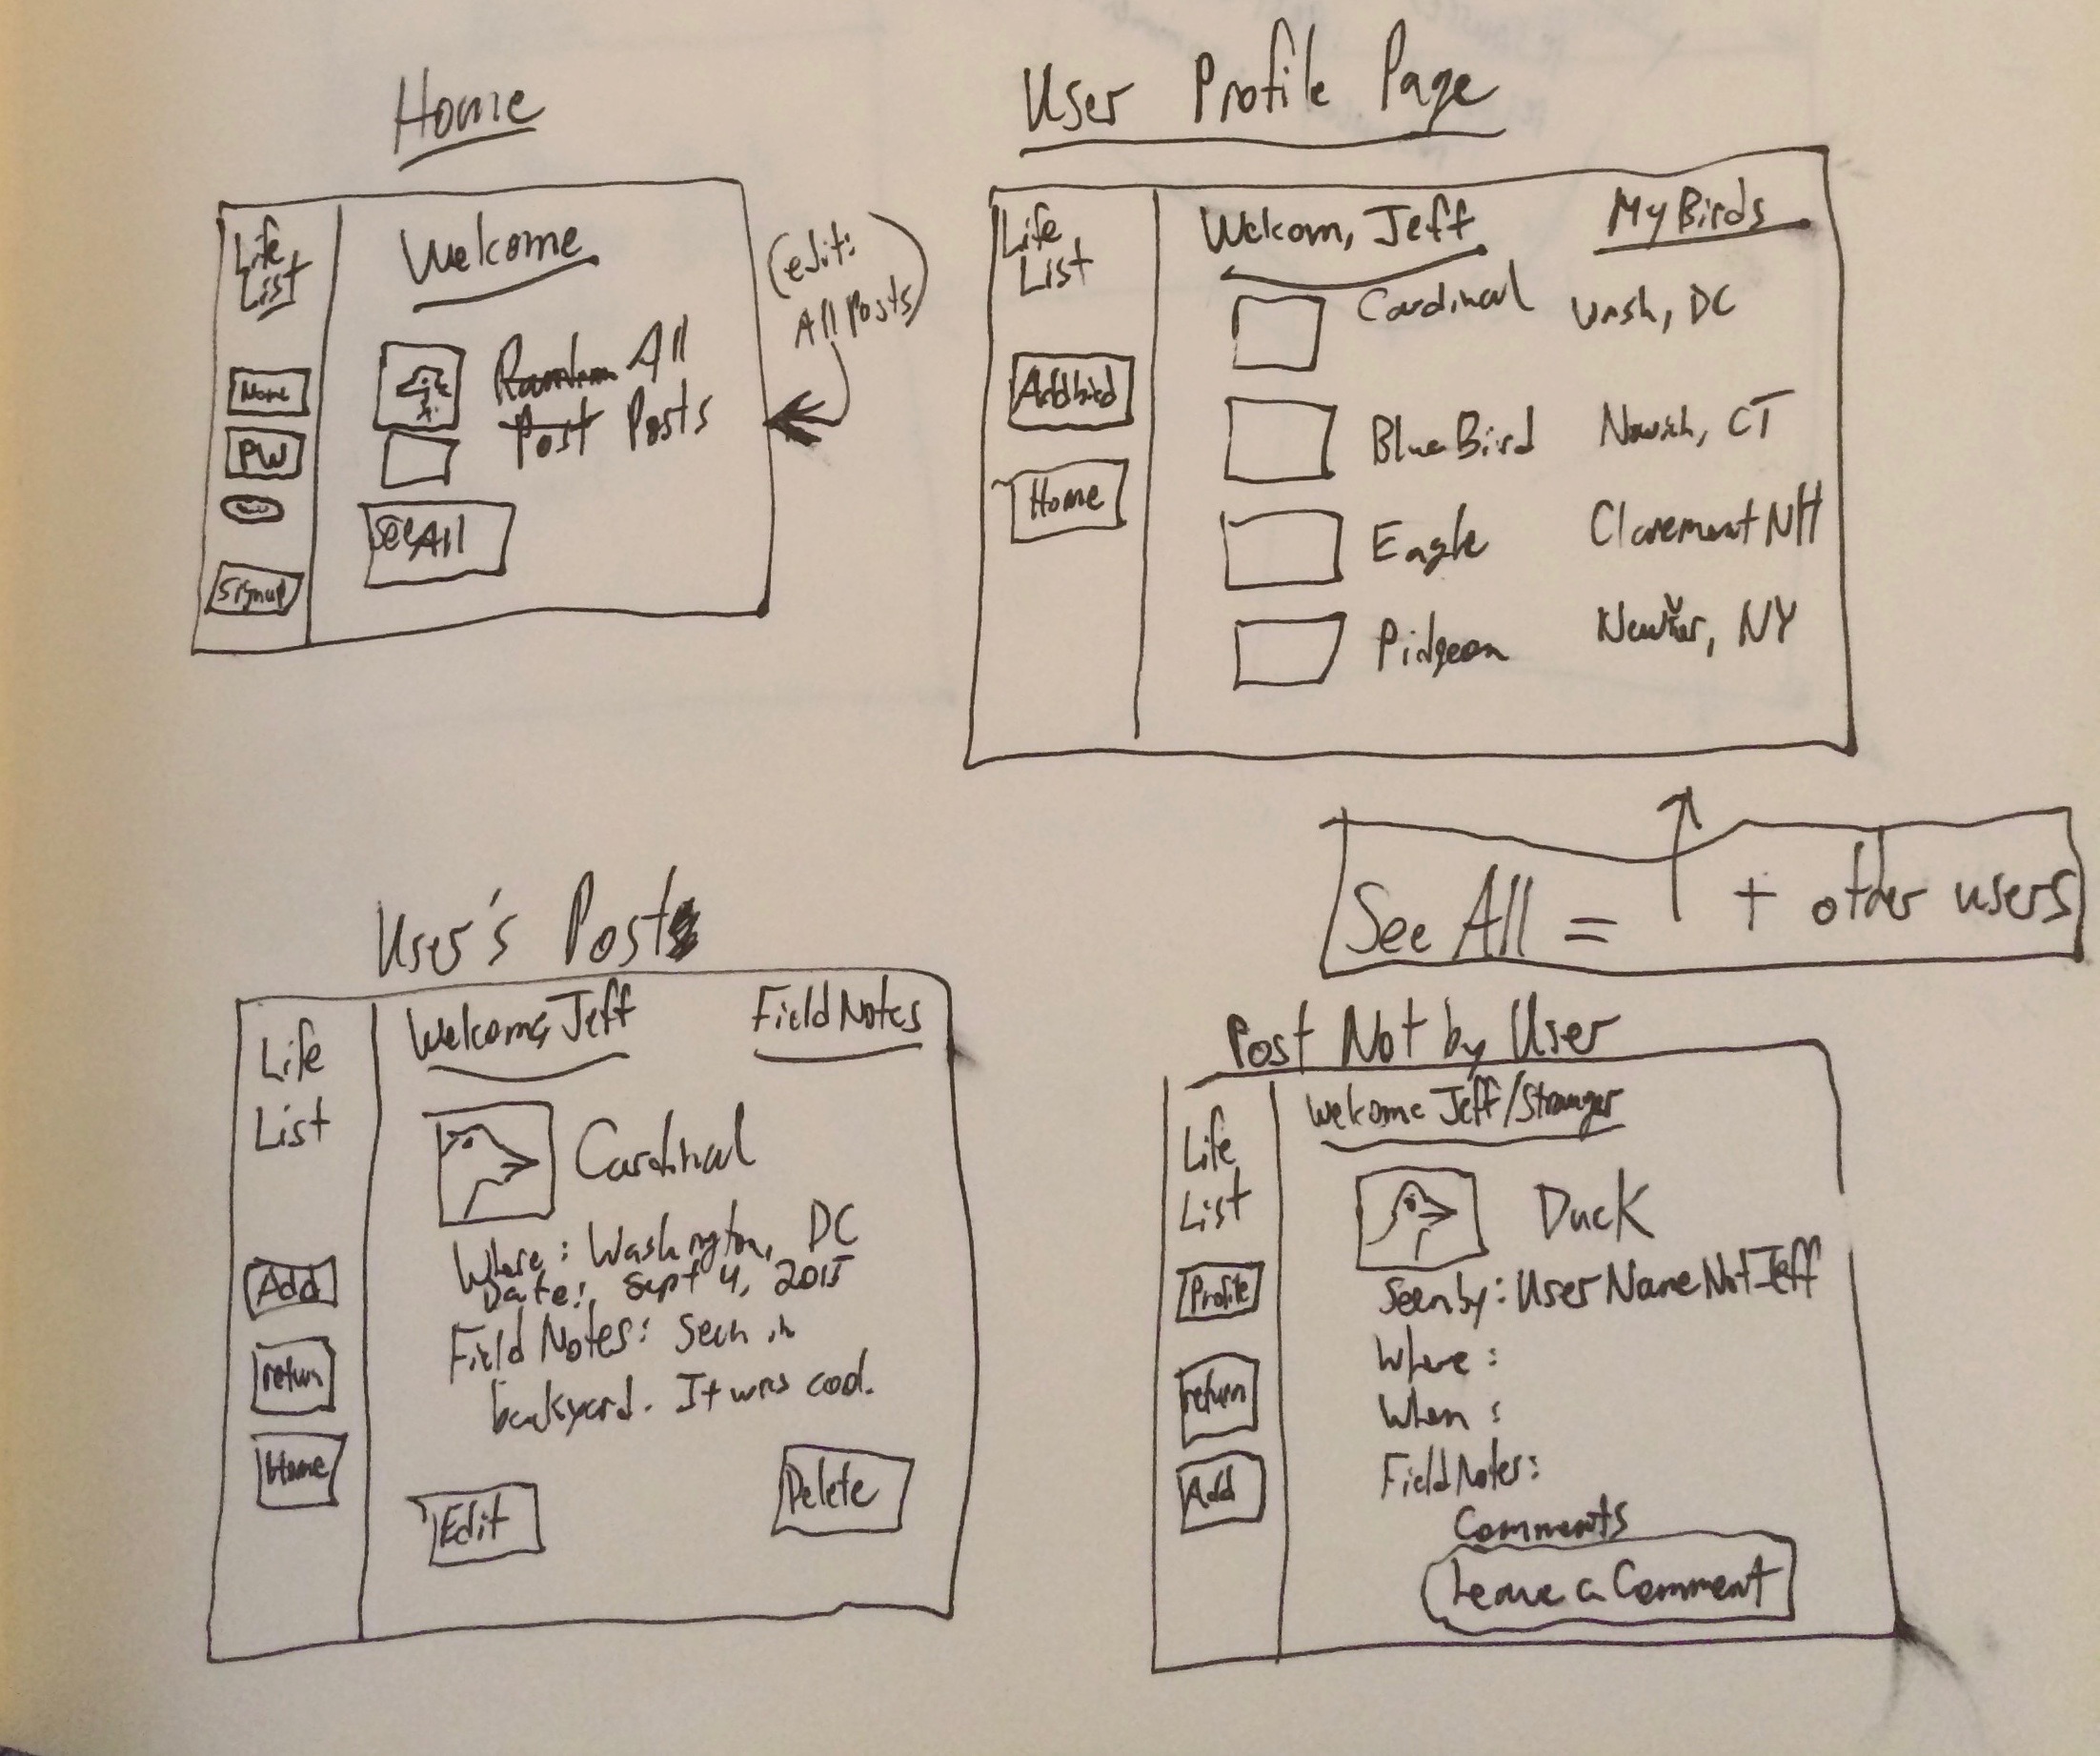 Home
Life
List
Name
PW
Signup
Welcome
Random All
Post Posts
See All
(edit:
All Posts)
User Profile Page
Life
List
Add bird
Home
Welcom, Jeff
My Birds
Cardinal Wash, DC
Blue Bird Norwich, CT
Eagle Claremont NH
Pidgeon NY
See All = ↑ + other users
User's Post
Life
List
Add
return
Home
Welcome, Jeff
Field Notes
Cardinal
Where: Washington, DC
Date: Sept 4, 2015
Field Notes: Seen in
backyard. It was cool.
Edit
Delete
Post Not by User
Life
List
Profile
return
Add
Welcome Jeff/Stranger
Duck
Seen by: User Name Not Jeff
Where:
When:
Field Notes:
Comments
Leave a Comment